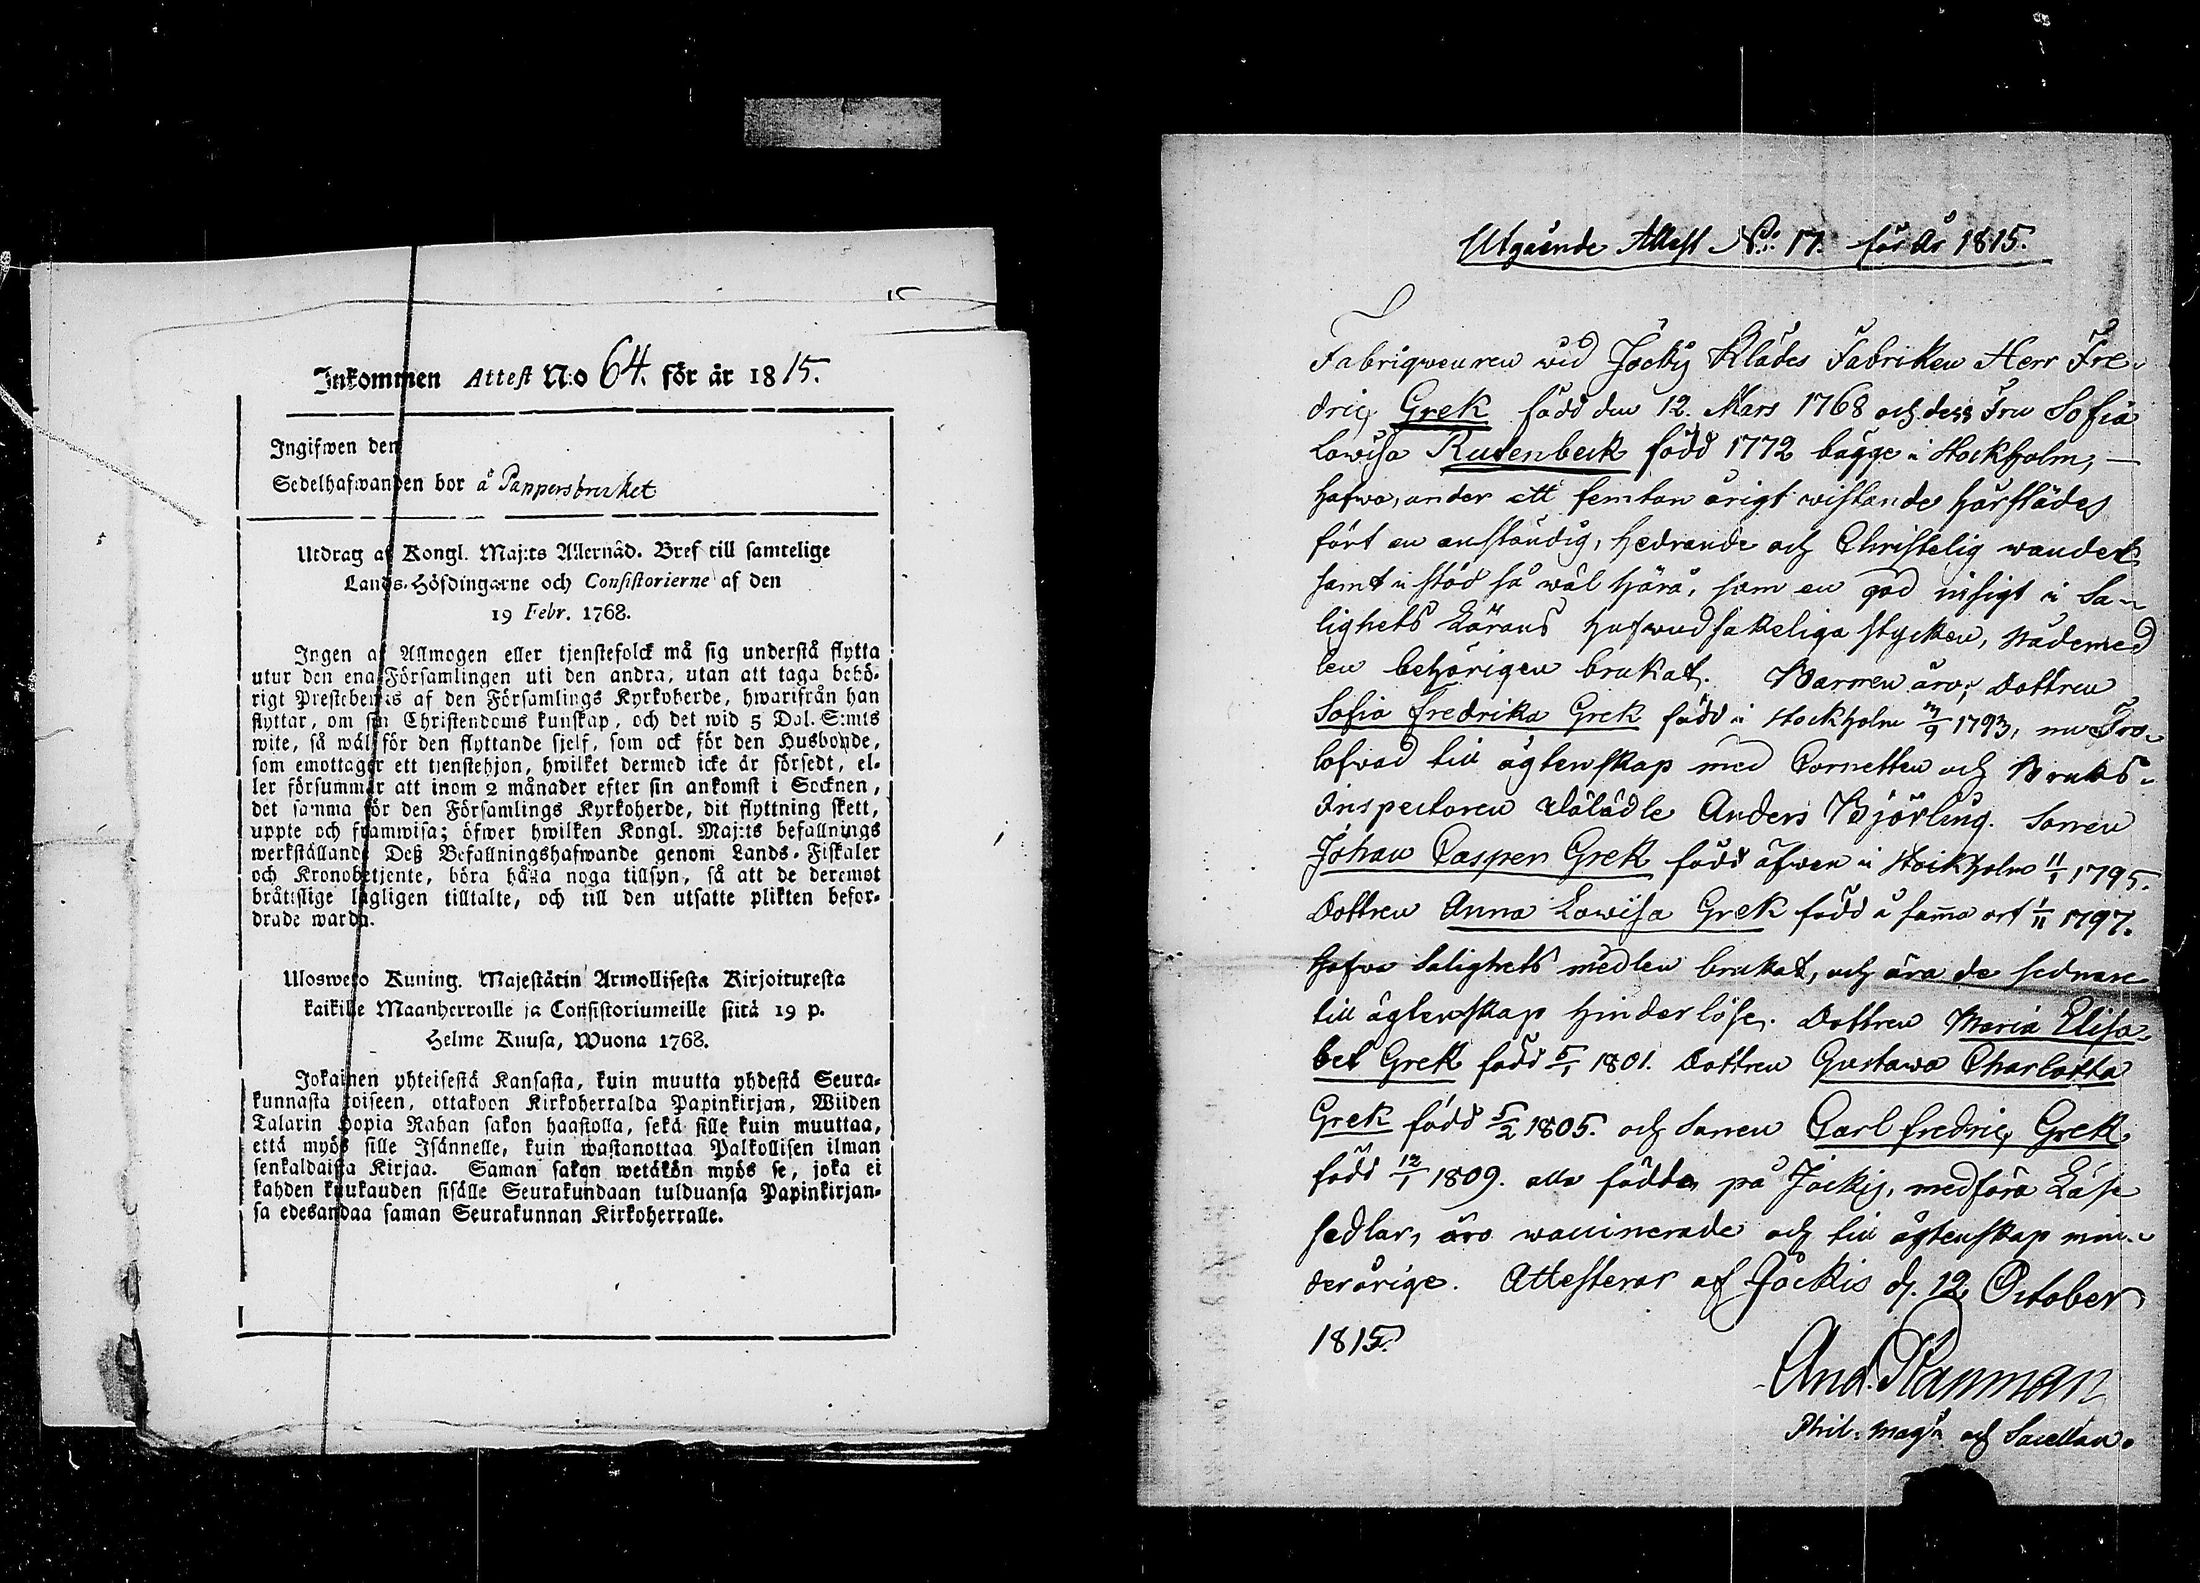 15
Inkommen Attest N:o 64. för år 1815.
Ingifwen den
Sedelhafwanden bor å Pappersbruket
Utdrag af Kongl. Maj:ts Allernåd. Bref till samtelige
Lands-Höfdingarne och Consistorierne af den
19 Febr. 1768.
Ingen af Allmogen eller tjenstefolck må sig understå flytta
utur den ena Församlingen uti den andra, utan att taga behö-
rigt Prestebewis af den Församlings Kyrkoherde, hwarifrån han
flyttar, om sin Christendoms kunskap, och det wid 5 Dal. S:mts
wite, så wäl för den flyttande sjelf, som ock för den Husbonde,
som emottager ett tjenstehjon, hwilket dermed icke är försedt, el-
ler försummar att inom 2 månader efter sin ankomst i Socknen,
det samma för den Församlings Kyrkoherde, dit flyttning skett,
uppte och framwisa; öfwer hwilken Kongl. Maj:ts befallnings
werkställande Deß Befallningshafwande genom Lands-Fiskaler
och Kronobetjente, böra hålla noga tillsyn, så att de deremot
bråttslige lagligen tilltalte, och till den utsatte plikten befor-
drade warda.
Ulosweto Kuning. Majestätin Armollisesta Kirjoituxesta
kaikille Maanherroille ja Consistoriumeille siitä 19 p.
Helme Kuusa, Wuona 1768.
Jokainen yhteisestä Kansasta, kuin muutta yhdestä Seura-
kunnasta toiseen, ottakoon Kirkoherralda Papinkirjan, Wiiden
Talarin Hopia Rahan sakon haastolla, sekä sille kuin muuttaa,
että myös sille Isännelle, kuin wastanottaa Palkollisen ilman
senkaldaista Kirjaa. Saman sakon wetäkön myös se, joka ei
kahden kuukauden sisälle Seurakundaan tulduansa Papinkirjan-
sa edesandaa saman Seurakunnan Kirkoherralle.
Utgående Attest No: 17. för År 1815.
Fabriqveuren wid Jockis Klädes Fabriken Herr Fre-
dric Grek född den 12. Mars 1768 och dess Fru Sofia
Lowisa Rutenbeck född 1772 bägge i Stockholm, —
hafwa, under ett femton årigt wistande härstädes
fört en anständig, hedrande och Christelig wandel
samt i stöd så wäl häraf, som en god insigt i Sa-
lighets Lärans hufwudsakeliga stycken, Nådemed
len behörigen brukat. Barnen äro; Dottren
Sofia Fredrika Grek född i Stockholm 3/9 1793, nu Tro-
lofwad till ägtenskap med Cornetten och Bruks-
Inspectoren Wälädle Anders Björling. Sonen
Johan Casper Grek född äfwen i Stockholm 11/1 1795.
Dottren Anna Lowisa Grek född å samma ort 1/11 1797.
Hafwa Salighets medlen brukat, och äro de sednare
till ägtenskap hinderlöse. Dottren Maria Elisa-
bet Grek född 5/1 1801. Dottren Gustawa Charlotta
Grek född 5/2 1805. och Sonen Carl Fredric Grek,
född 12/1 1809. alla födde på Jockis, medföra Läse
sedlar, äro waccinerade och till ägtenskap min-
derårige. Attesterar af Jockis d. 12 October
1815.
And.
Phil. Mag:r och Sacellan.